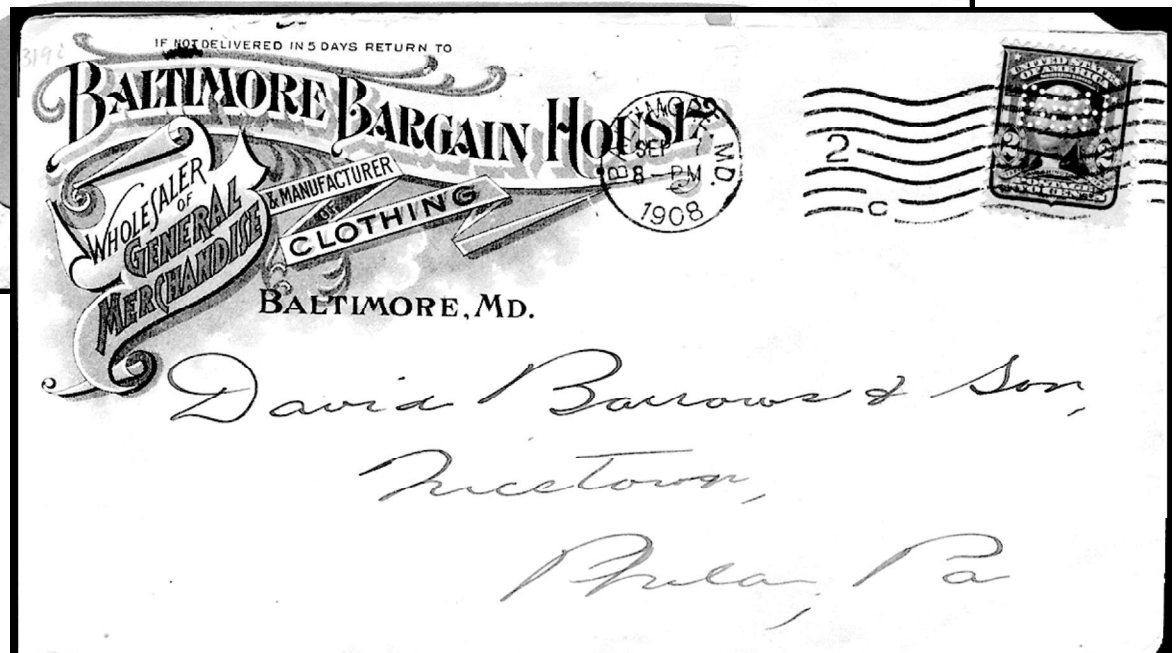 3192
IF NOT DELIVERED IN 5 DAYS RETURN TO
BALTIMORE BARGAIN HOUSE
WHOLESALER
OF
GENERAL
MERCHANDISE
& MANUFACTURER
OF
CLOTHING
BALTIMORE, MD.
BALTIMORE, MD.
SEP 7
8-PM
1908
2
C
UNITED STATES
OF AMERICA
2 2
David Barrows & Son,
Nicetown,
Phila, Pa